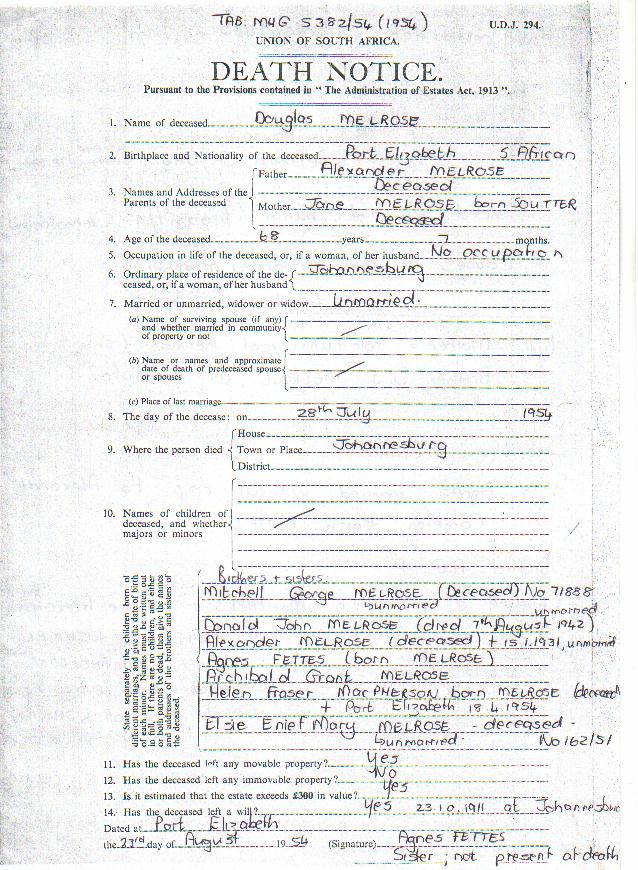 TAB. MHG 5382/54 (1954)
U.D.J. 294.
UNION OF SOUTH AFRICA.
DEATH NOTICE.
Pursuant to the Provisions contained in " The Administration of Estates Act, 1913 ".
1. Name of deceased Douglas MELROSE
2. Birthplace and Nationality of the deceased Port Elizabeth S. African
3. Names and Addresses of the Parents of the deceased
Father Alexander MELROSE
Deceased
Mother Jane MELROSE born SOUTTER
Deceased
4. Age of the deceased 68 years 7 months.
5. Occupation in life of the deceased, or, if a woman, of her husband No occupation
6. Ordinary place of residence of the de-
ceased, or, if a woman, of her husband
Johannesburg
7. Married or unmarried, widower or widow Unmarried.
(a) Name of surviving spouse (if any)
and whether married in community
of property or not
(b) Name or names and approximate
date of death of predeceased spouse
or spouses
(c) Place of last marriage
8. The day of the decease: on 28th July 1954
9. Where the person died
House
Town or Place Johannesburg
District
10. Names of children of
deceased, and whether
majors or minors
State separately the children born of
different marriages, and give the date of birth
of each minor. Names must be written out
in full. If there are no children, and either
or both parents be dead, then give the names
and addresses of the brothers and sisters of
the deceased.
Brothers + sisters
Mitchell George MELROSE (Deceased) No 71888
unmarried
unmarried
Donald John MELROSE (died 7th August 1942)
Alexander MELROSE (deceased) + 15.1.1931, unmarried
Agnes FETTES (born MELROSE)
Archibald Grant MELROSE
Helen Fraser MacPHERSON born MELROSE (deceased
+ Port Elizabeth 18.4.1954
Elsie Enief Mary MELROSE - deceased -
unmarried No 162/51
11. Has the deceased left any movable property? Yes
12. Has the deceased left any immovable property? No
13. Is it estimated that the estate exceeds £300 in value? Yes
14. Has the deceased left a will? Yes 23.10.1911 at Johannesburg
Dated at Port Elizabeth
the 23rd day of August 1954 (Signature) Agnes FETTES
Sister ; not present at death